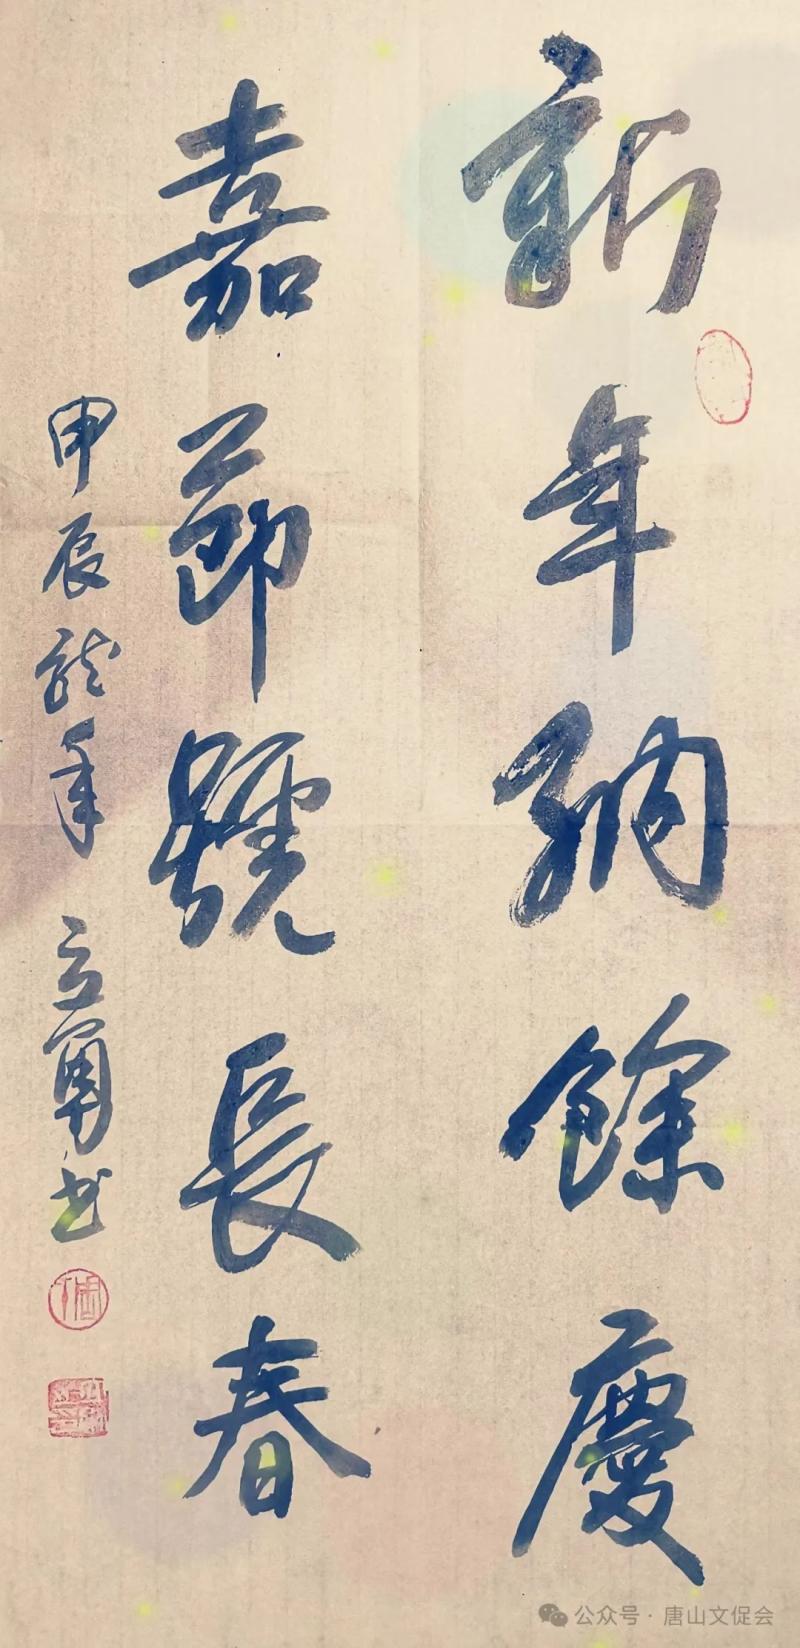 新年納餘慶
嘉節號長春
甲辰龙年 立勇书
公众号·唐山文促会